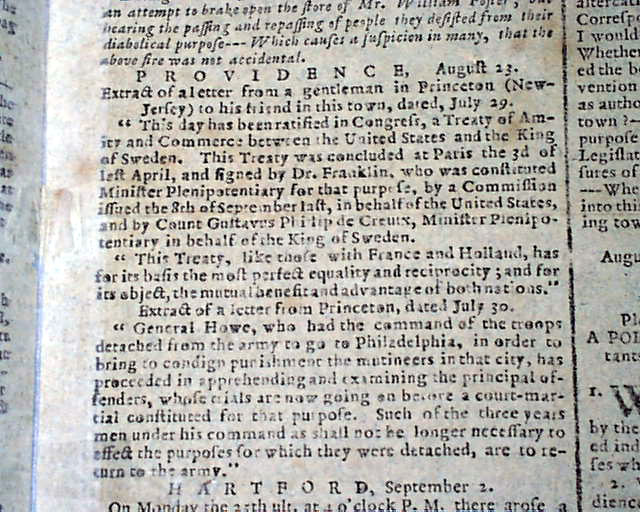 an attempt to brake open the store of Mr. William Foster; but
hearing the passing and repassing of people they desisted from their
diabolical purpose--- Which causes a suspicion in many, that the
above fire was not accidental.
PROVIDENCE, August 23.
Extract of a letter from a gentleman in Princeton (New-
Jersey) to his friend in this town, dated, July 29.
" This day has been ratified in Congress, a Treaty of Am-
ity and Commerce between the United States and the King
of Sweden. This Treaty was concluded at Paris the 3d of
last April, and signed by Dr. Franklin, who was constituted
Minister Plenipotentiary for that purpose, by a Commission
issued the 8th of September last, in behalf of the United States,
and by Count Gustavus Philip de Creutx, Minister Plenipo-
tentiary in behalf of the King of Sweden.
" This Treaty, like those with France and Holland, has
for its basis the most perfect equality and reciprocity ; and for
its object, the mutual benefit and advantage of both nations."
Extract of a letter from Princeton, dated July 30.
" General Howe, who had the command of the troops
detached from the army to go to Philadelphia, in order to
bring to condign punishment the mutineers in that city, has
proceeded in apprehending and examining the principal of-
fenders, whose trials are now going on before a court-mar-
tial constituted for that purpose. Such of the three years
men under his command as shall not be longer necessary to
effect the purposes for which they were detached, are to re-
turn to the army."
HARTFORD, September 2.
On Monday the 25th ult. at 4 o'clock P. M. there arose a
Corresp
I would
Whethe
ed the b
vention
as autho
town ?—
purpose
Legislat
sures of
—Whe
into thi
ing tow
Augu
Pl
A POL
tants
1. W
by the
ed ind
ses wh
2.
dienc